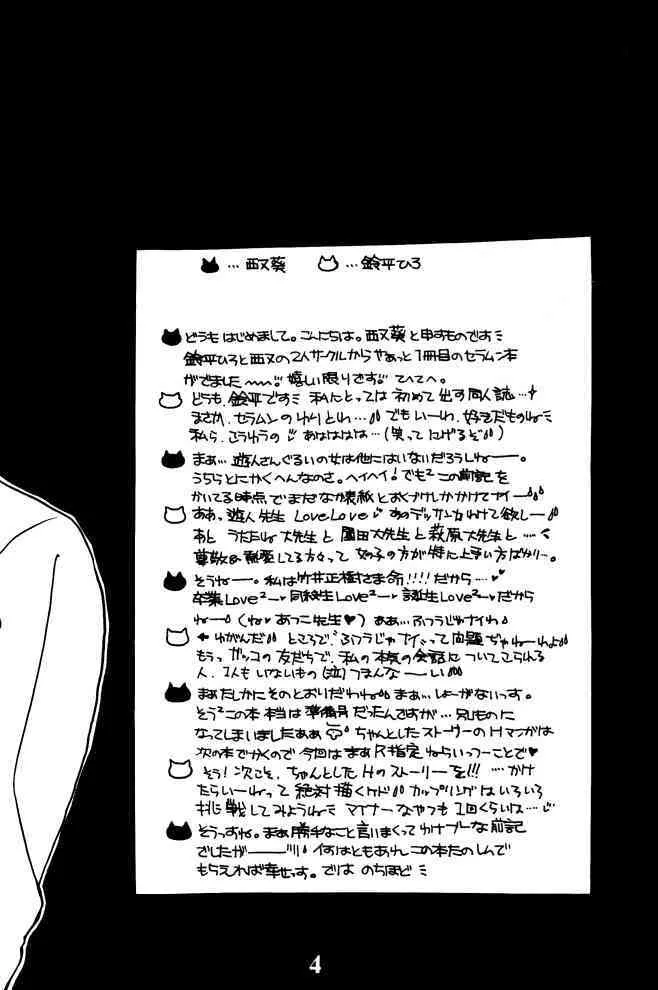 …西又葵 …鈴平ひろ
どうもはじめまして。こんにちは。西又葵と申すものです
鈴平ひろと西又の2人サークルからやぁっと1冊目のセラムン本
がでました〜〜!! 嬉しい限りです!! てへてへ。
どうも、鈴平です 私にとっては初めて出す同人誌…
まさか、セラムンのやりとわ… でもいーわ、好きだものね
私ら、こうゆうの あはははは…(笑ってにげるぞ)
まあ…遊人さんぐるいの女は他にはいないだろうしねー。
うちらとにかくへんなのさ。ヘイヘイ! でも²この前記を
かいてる時点でまだ表紙とおくづけしかかけてナイー
ああっ遊人先生 LoveLove あのデッサン力わけて欲しー
あと うたたね大先生と園田大先生と萩原大先生と……
尊敬&熱愛してる方々って 女の子の方が特に上手い方ばかりー。
そうねー。私は竹井正樹さま命!!!!だから…
卒業Love²ー♥同級生Love²ー♥誕生Love²ー♥だから
ねー(ね♥あっこ先生♥) ああ…ふつうじゃナイわ
←ゆがんだ ところで、ふつうじゃナイって問題ぢゃねーわよ
もうっガッコの友だちで、私の本気の会話についてこられる
人、1人もいないもの(泣)つまんなーーい
まあたしかにそのとおりだわね まあ…しょーがないっす。
そう²この本本当は準備号だったんですが…児ものに
なってしまいましたああ ちゃんとしたストーリーのHマンガは
次の本でかくので今回はまあR指定ねらいっつーことで♥
そう!次こそ、ちゃんとしたHのストーリーを!!! …かけ
たらいーねって 絶対描くケド カップリングはいろいろ
挑戦してみようね マイナーなやつも1回くらいは…
そうっすね。まあ勝手なこと言いまくってわけブーな前記
でしたがーー!!! 何はともあれこの本たのしんで
もらえれば幸せっす。では のちほど
4